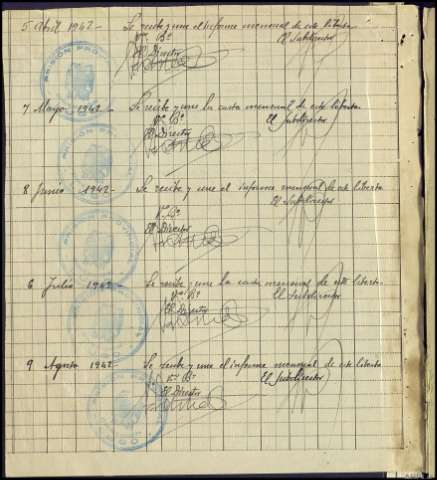 5 Abril 1942- Se recibe y une el informe mensual de este liberto.
Vº Bº El Subdirector
El Director
PRISIÓN PROVINCIAL
7 Mayo 1942- Se recibe y une la carta mensual de este liberto.
Vº Bº El Subdirector
El Director
8 Junio 1942- Se recibe y une el informe mensual de este liberto.
El Subdirector
Vº Bº
El Director
PRISIÓN PROVINCIAL
6 Julio 1942- Se recibe y une la carta mensual de este liberto.
Vº Bº El Subdirector
El Director
9 Agosto 1942- Se recibe y une el informe mensual de este liberto
Vº Bº El Subdirector
El Director